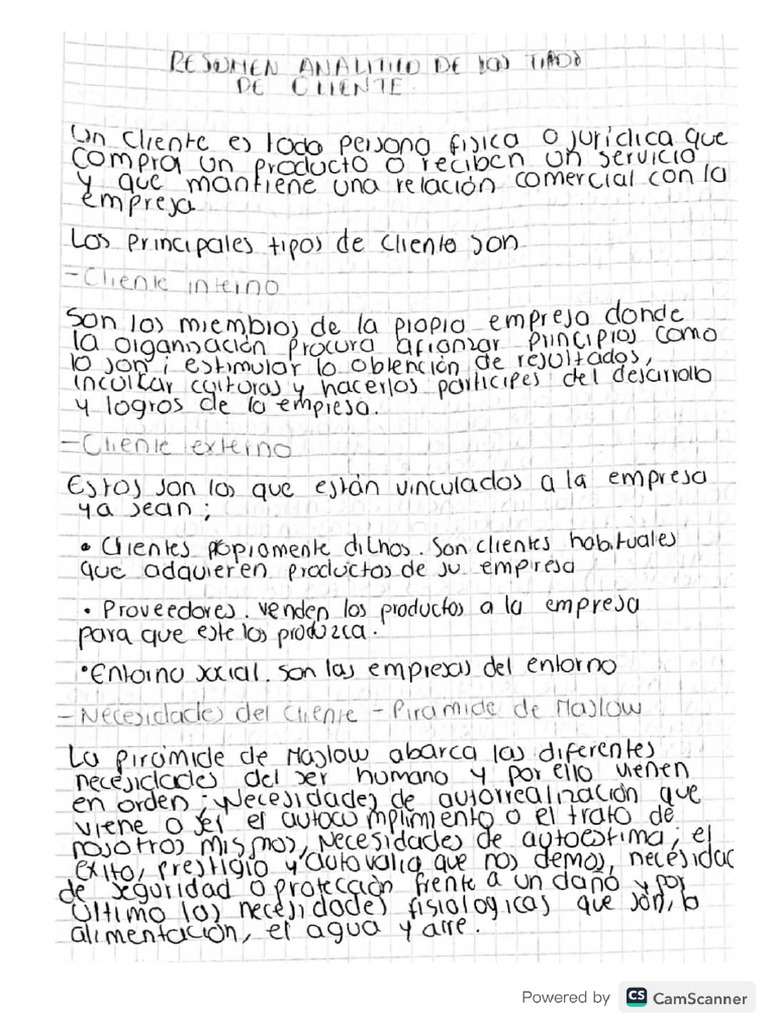 RESUMEN ANALITICO DE LOS TIPOS
DE CLIENTE.
Un cliente es toda persona fisica o jurídica que
compra un producto o reciben un servicio
y que mantiene una relación comercial con la
empresa
Los principales tipos de cliente son
- Cliente interno
Son los miembros de la propia empresa donde
la organización procura afianzar principios como
lo son; estimular la obtención de resultados,
inculcar culturas y hacerlos participes del desarrollo
y logros de la empresa.
- Cliente externo
Estos son los que están vinculados a la empresa
ya sean;
• Clientes propiamente dichos. Son clientes habituales
que adquieren productos de su empresa
• Proveedores. venden los productos a la empresa
para que este los produzca.
• Entorno social. Son las empresas del entorno
- Necesidades del cliente - Piramide de Maslow
La pirámide de Maslow abarca las diferentes
necesidades del ser humano y por ello vienen
en orden; Necesidades de autorrealización que
viene a ser el autocumplimiento o el trato de
nosotros mismos, Necesidades de autoestima; el
éxito, prestigio y autovalia que nos demos, necesidad
de seguridad o protección frente a un daño y por
último las necesidades fisiologicas que son, la
alimentación, el agua y aire.
Powered by CS CamScanner